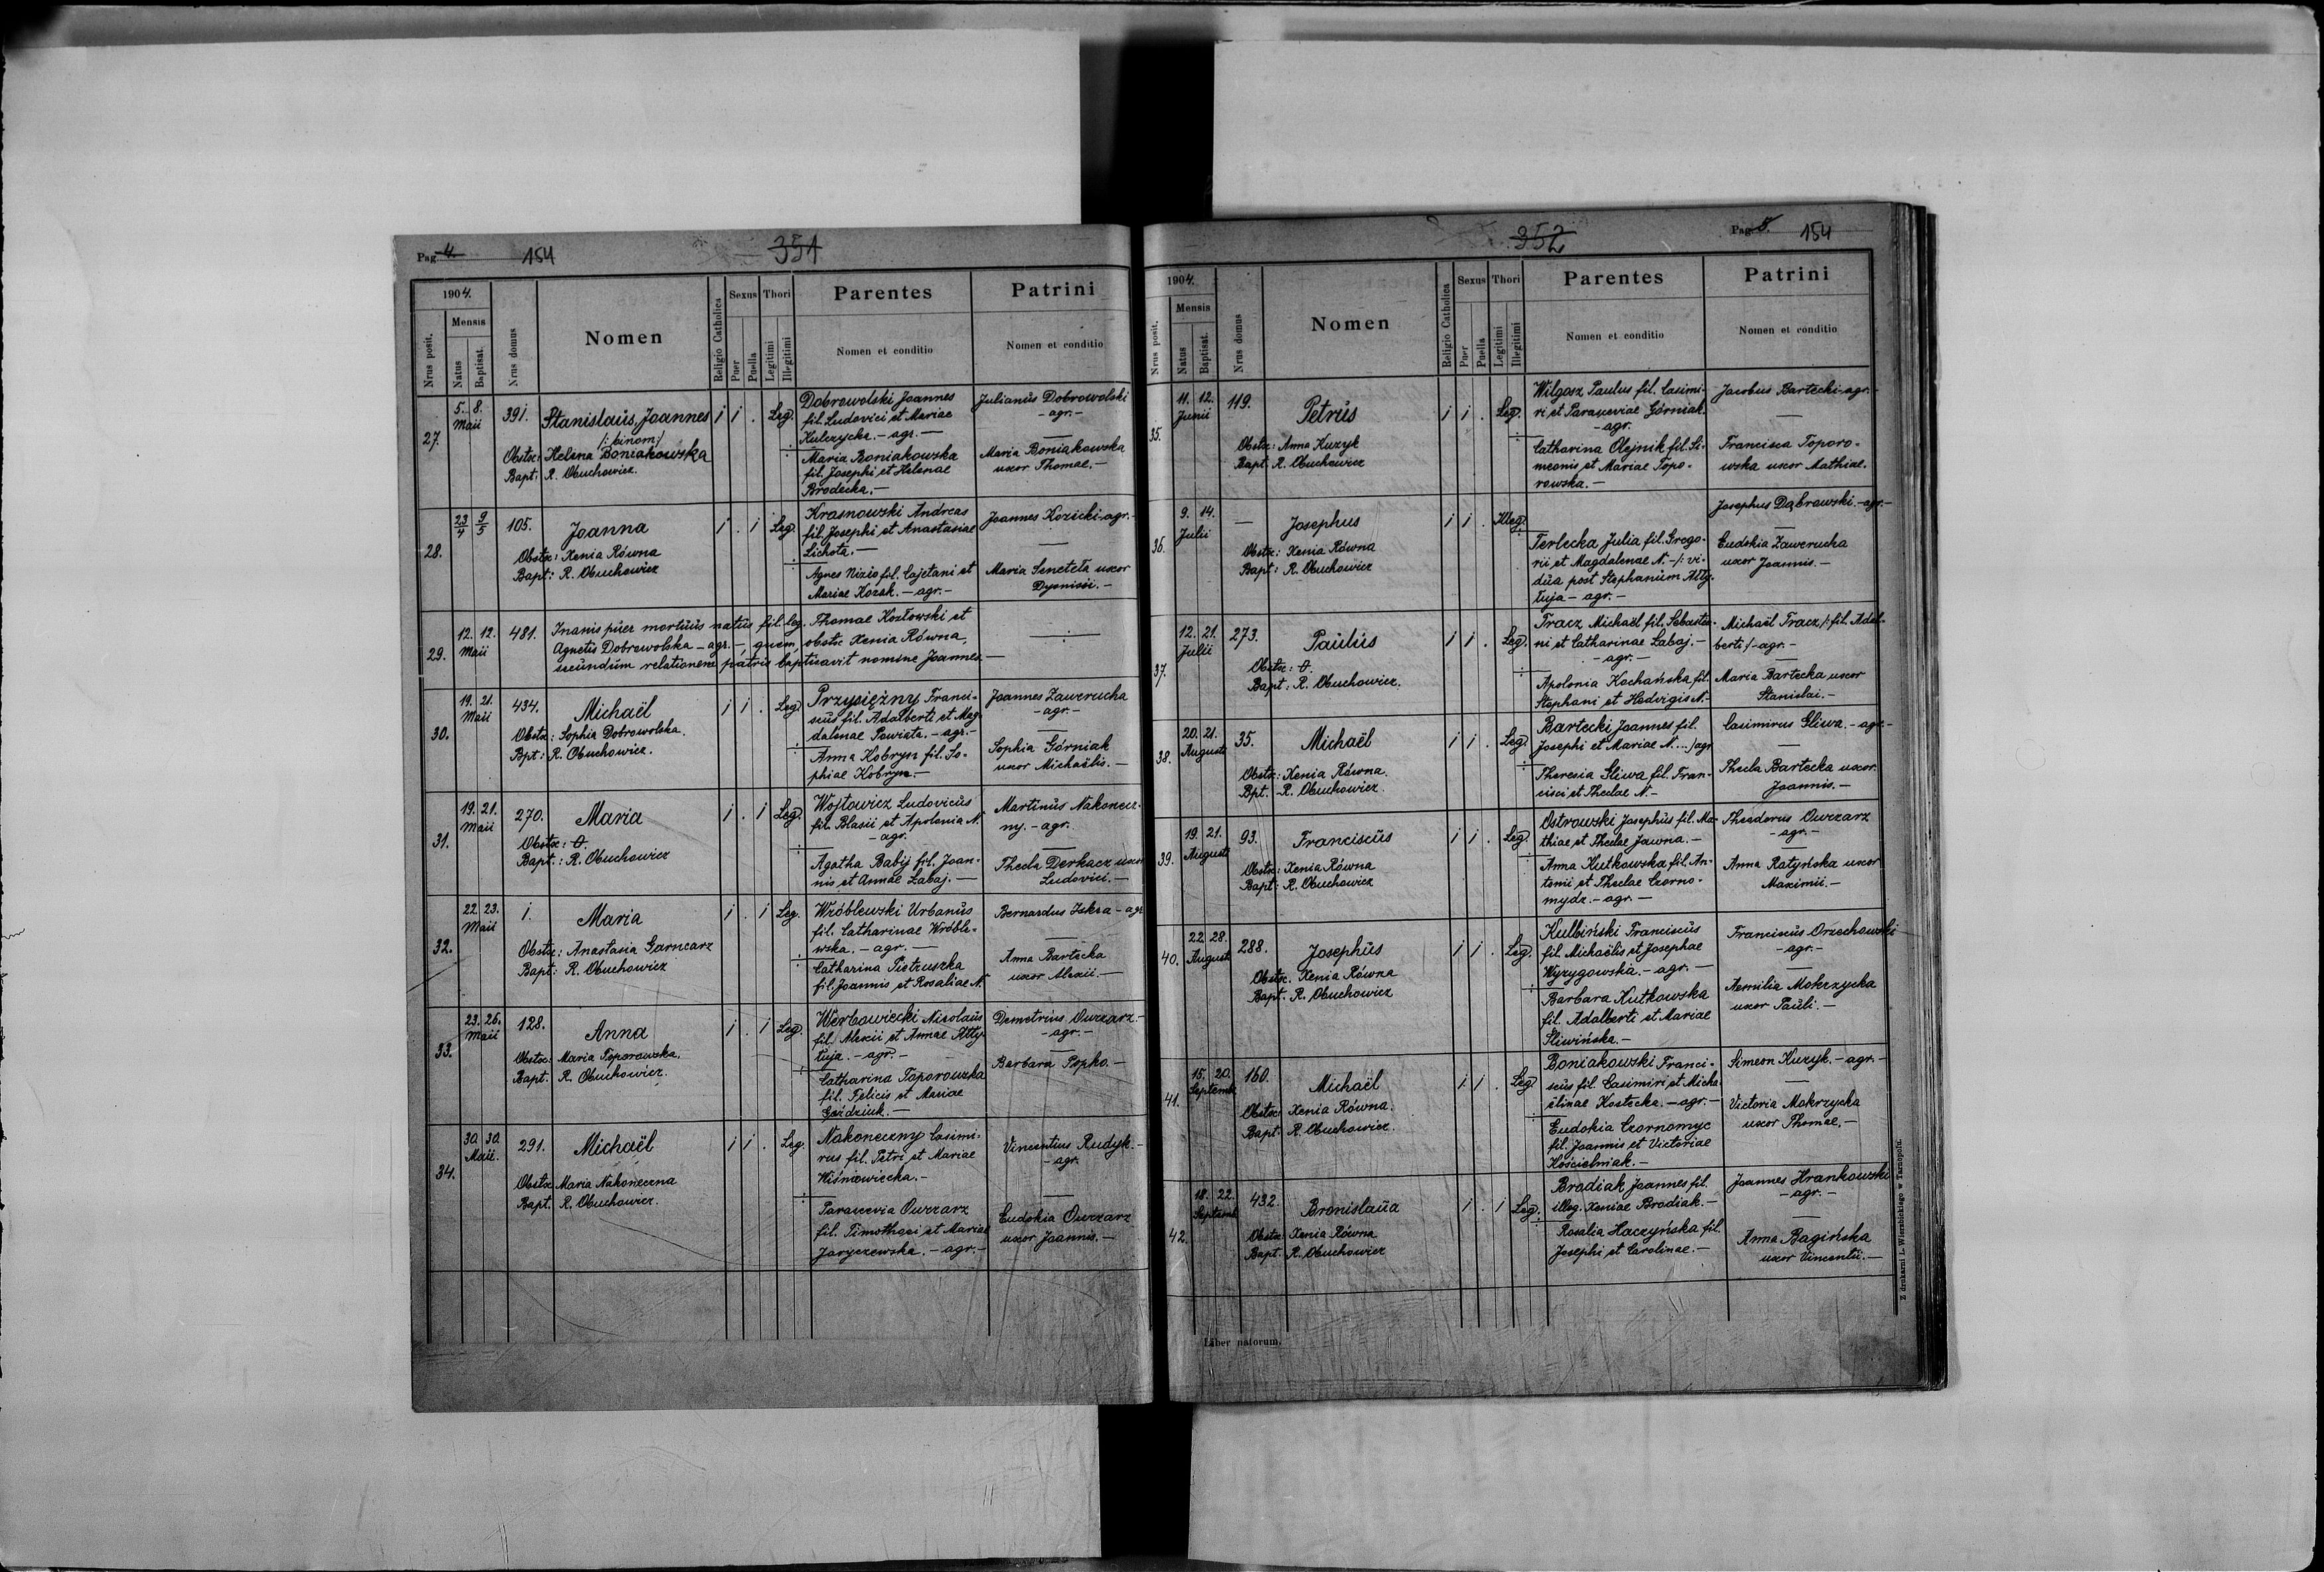 Pag 4.
154
351
1904.
Nrus posit.
Mensis
Natus
Baptisat.
Nrus domus
Nomen
Religio Catholica
Sexus
Puer
Puella
Thori
Legitimi
Illegitimi
Parentes
Nomen et conditio
Patrini
Nomen et conditio
27.
5. 8.
Maii
391.
Stanislaüs, Joannes
/: binom/
Obstx: Helena Boniakowska
Bapt: R. Obuchowicz.
i i . Leg.
Dobrowolski Joannes
fil. Ludovici et Mariae
Kulczycka. – agr. –
Maria Boniakowska
fil. Josephi et Helenae
Brodecka. –
Julianüs Dobrowolski
– agr. –
Maria Boniakowska
uxor Thomae. –
28.
23/4 9/5
105.
Joanna
Obstx: Xenia Równa
Bapt: R. Obuchowicz
i . i Leg.
Krasnowski Andreas
fil. Josephi et Anastasiae
Lichota. –
Agnes Nizio fil. Cajetani et
Mariae Kozak. – agr. –
Joannes Kozicki – agr. –
Maria Seneteła uxor
Dyonisii. –
29.
12. 12.
Maii
481.
Inanis püer mortüüs natüs fil. leg. Thomae Kozłowski et
Agnetis Dobrowolska – agr. –, quem, obstx Xenia Równa,
secündüm relationem patris baptisavit nomine Joannes. –
30.
19. 21.
Maii
434.
Michaël
Obstx: Sophia Dobrowolska.
Bpt: R. Obuchowicz.
i i . Leg.
Przysiężny Franci-
scüs fil. Adalberti et Mag-
dalenae Powiata. – agr. –
Anna Kobryn fil. So-
phiae Kobryn. –
Joannes Zawerucha
– agr. –
Sophia Górniak
uxor Michaëlis. –
31.
19. 21.
Maii
270.
Maria
Obstx: O.
Bapt.: R. Obuchowicz
i . i Leg.
Wojtowicz Ludovicüs
fil. Blasii et Apolonia N.
– agr. –
Agatha Babij fil. Joan-
nis et Annae Łabaj. –
Martinüs Nakonecz-
ny. – agr.
Thecla Derkacz uxor
Ludovici. –
32.
22. 23.
Maii
1.
Maria
Obstx: Anastasia Garncarz
Bapt: R. Obuchowicz
i . i Leg.
Wróblewski Urbanüs
fil. Catharinae Wróble-
wska. – agr. –
Catharina Pietruszka
fil. Joannis et Rosaliae N.
Bernardus Iskra – agr
Anna Bartecka
uxor Alexii. –
33.
23. 26.
Maii
128.
Anna
Obstx: Maria Toporowska.
Bapt. R. Obuchowicz.
i . i Leg.
Werbowiecki Nicolaüs
fil. Alexii et Annae Ałty-
łuja. – agr. –
Catharina Toporowska
fil. Felicis et Mariae
Goździuk. –
Demetrius Owczarz. –
– agr. –
Barbara Popko. –
34.
30. 30.
Maii.
291.
Michaël
Obstx Maria Nakoneczna
Bapt. R. Obuchowicz.
i i . Leg.
Nakoneczny Casimi-
rus fil. Petri et Mariae
Wiśniowiecka. –
Parascevia Owczarz
fil. Timothaei et Mariae
Jaryczewska. – agr. –
Vincentius Rudyk. –
– agr.
Eudokia Owczarz
uxor Joannis. –
352
Pag 5.
154
1904.
Nrus posit.
Mensis
Natus
Baptisat.
Nrus domus
Nomen
Religio Catholica
Sexus
Puer
Puella
Thori
Legitimi
Illegitimi
Parentes
Nomen et conditio
Patrini
Nomen et conditio
35.
11. 12.
Junii
119.
Petrüs
Obstx: Anna Kuzyk
Bapt. R. Obuchowicz
i i . Leg.
Wilgosz Paulus fil. Casimi-
ri et Parasceviae Górniak.
– agr.
Catharina Olejnik fil. Si-
meonis et Mariae Topo-
rowska. –
Jacobus Bartecki – agr. –
Francisca Toporo-
wska uxor Mathiae.
36.
9. 14.
Julii
—
Josephus
Obstx: Xenia Równa
Bapt: R. Obuchowicz
i i . Illeg.
Terlecka Julia fil. Grego-
rii et Magdalenae N. – /: vi-
düa post Stephanüm Ałty-
łuja – agr. –
Josephus Dąbrowski. – agr. –
Eudokia Zawerucha
uxor Joannis. –
37.
12. 21.
Julii
273.
Paülüs
Obstx: O.
Bapt: R. Obuchowicz.
i i . Leg.
Tracz Michaël fil. Sebastia-
ni et Catharinae Łabaj. –
– agr. –
Apolonia Kochańska fil.
Stephani et Hedvigis N. –
Michaël Tracz /: fil. Adal-
berti /– agr. –
Maria Bartecka uxor
Stanislai. –
38.
20. 21.
Augusti
35.
Michaël
Obstx: Xenia Równa.
Bpt. R. Obuchowicz.
i i . Leg.
Bartecki Joannes fil.
Josephi et Mariae N... /agr
Theresia Gliwa fil. Fran-
cisci et Theclae N. –
Casimirus Gliwa. – agr. –
Thecla Bartecka uxor.
Joannis. –
39.
19. 21.
Augusti
93.
Franciscüs
Obstx: Xenia Równa
Bapt: R. Obuchowicz
i i . Leg.
Ostrowski Josephüs fil. Ma-
thiae et Theclae Jawna. –
Anna Kutkowska fil. An-
tonii et Theclae Czorno-
mydz. – agr. –
Theodorus Owczarz
– agr. –
Anna Ratyńska uxor
Maximii. –
40.
22. 28.
August
288.
Josephüs
Obstx. Xenia Równa
Bapt. R. Obuchowicz
i i . Leg.
Kulbiński Franciscüs
fil. Michaëlis et Josephae
Wyzygowska. – agr. –
Barbara Kutkowska
fil. Adalberti et Mariae
Śliwińska. –
Franciscüs Orzechowski
– agr. –
Aemilia Mokrzycka
uxor Paüli. –
41.
15. 20.
Septemb
160.
Michaël
Obstx: Xenia Równa.
Bapt. R. Obuchowicz.
i i . Leg.
Boniakowski Franci-
scüs fil. Casimiri et Micha-
ëlinae Kostecka. – agr. –
Eudokia Czornomyc
fil. Joannis et Victoriae
Kościelniak. –
Simeon Kuzyk. – agr. –
Victoria Mokrzycka
uxor Thomae. –
42.
18. 22.
Septemb
432.
Bronislaüa
Obstx: Xenia Równa
Bapt. R. Obuchowicz
i . i Leg.
Brodiak Joannes fil.
illeg. Xeniae Brodiak. –
Rosalia Haczyńska fil.
Josephi et Carolinae. –
Joannes Hrankowski
– agr. –
Anna Bagińska
uxor Vincentii. –
Liber natorum.
Z drukarni L. Wierzbickiego w Tarnopolu.